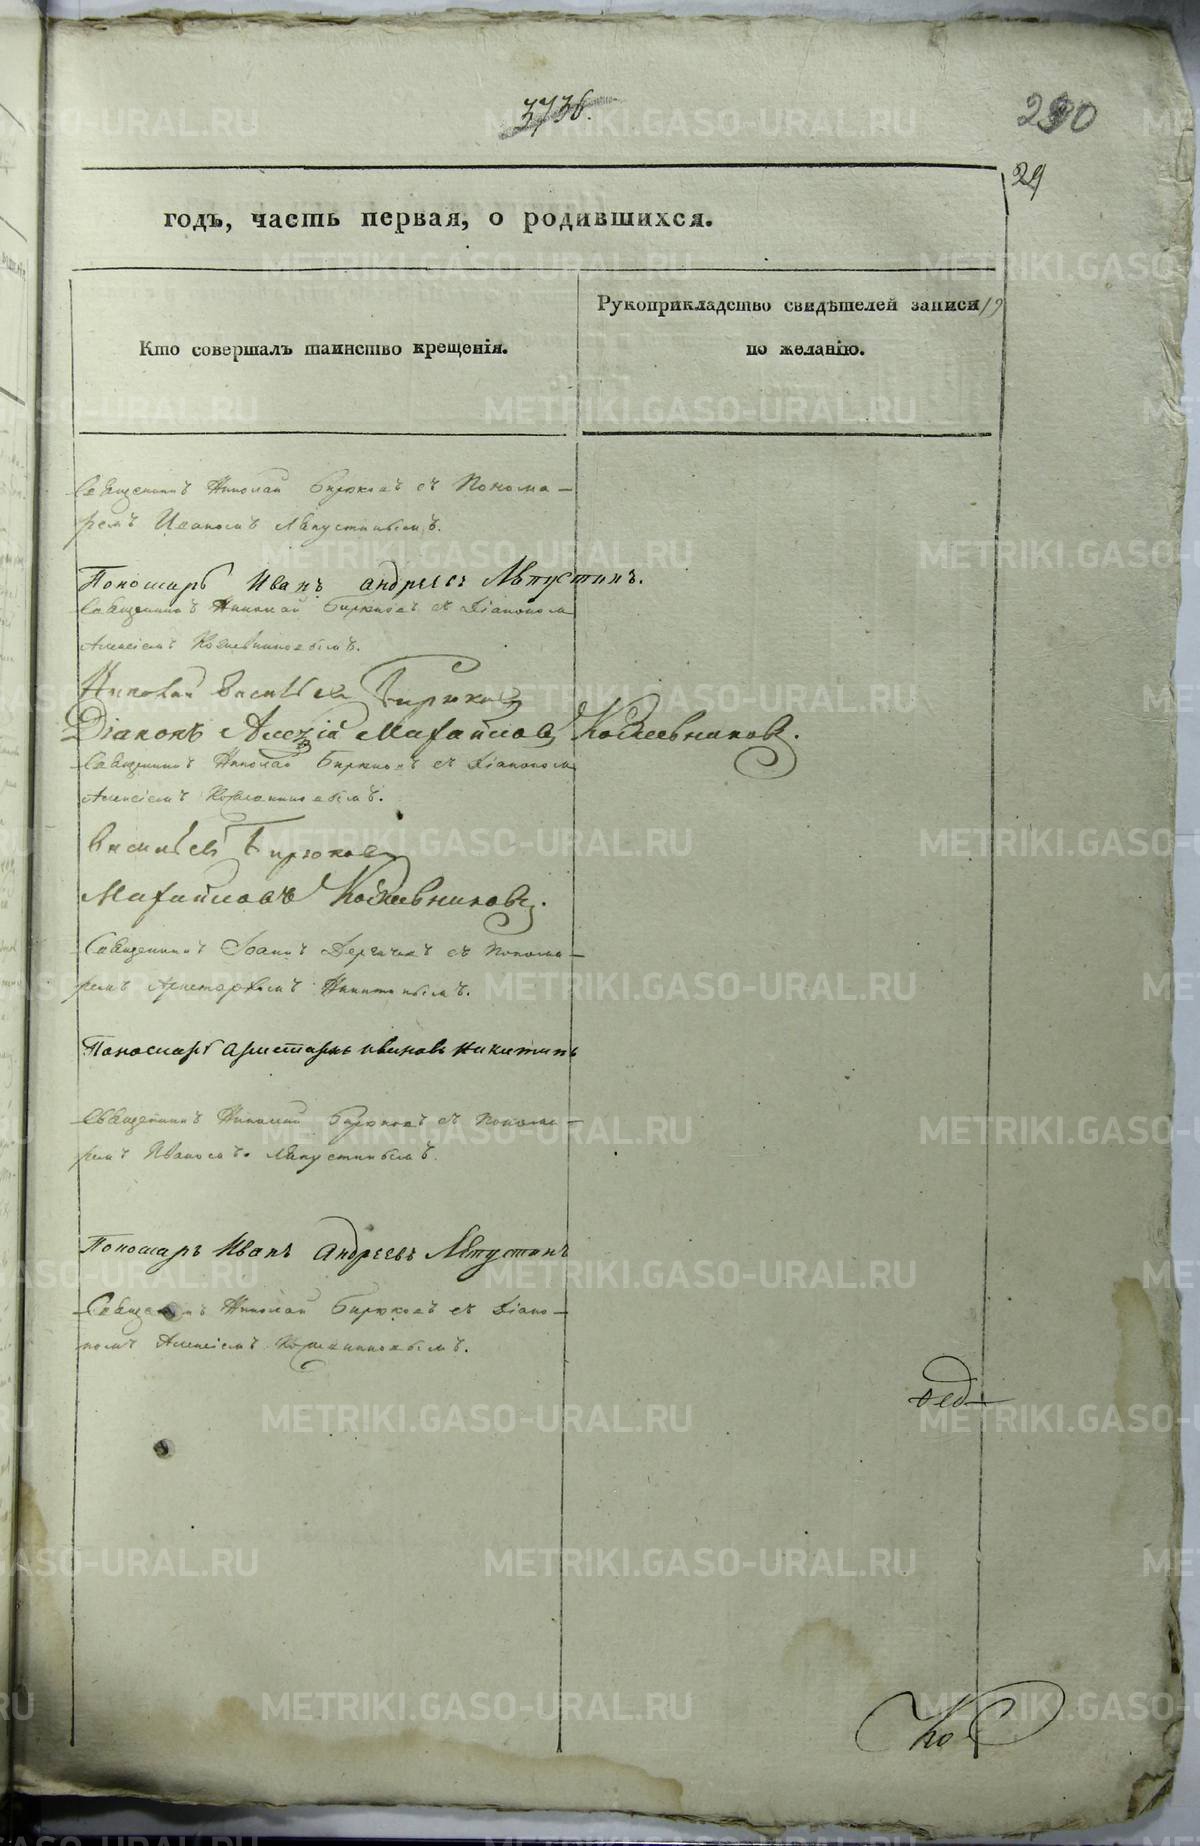 3736.
290
29
годъ, часть первая, о родившихся.
Рукоприкладство свидѣтелей записи
19
Кто совершалъ таинство крещенія.
по желанію.
Священникъ Николай Бирюковъ съ Понома-
ремъ Иваномъ Лапустинымъ.
Пономарь Иванъ Андреевъ Лапустинъ.
Священникъ Николай Бирюковъ съ Діакономъ
Алексіемъ Кожевниковымъ.
Николай Васильевъ Бирюковъ
Діаконъ Алексій Михайловъ Кожевниковъ.
Священникъ Николай Бирюковъ съ Діакономъ
Алексіемъ Кожевниковымъ.
Васильевъ Бирюковъ
Михайловъ Кожевниковъ.
Священникъ Іоаннъ Дергачевъ съ Понома-
ремъ Аристархомъ Никитинымъ.
Пономарь Аристархъ Ивановъ Никитинъ
Священникъ Николай Бирюковъ съ Понома-
ремъ Иваномъ Лапустинымъ.
Пономарь Иванъ Андреевъ Лапустинъ
Священникъ Николай Бирюковъ съ Діако-
номъ Алексіемъ Кожевниковымъ.
Ко
METRIKI.GASO-URAL.RU